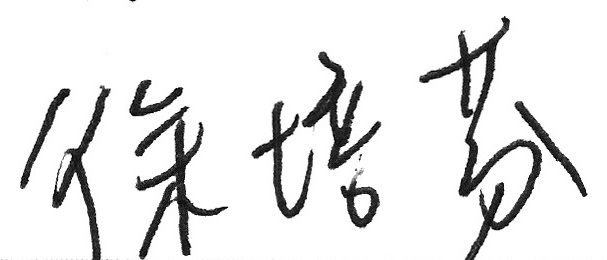 徐培芬